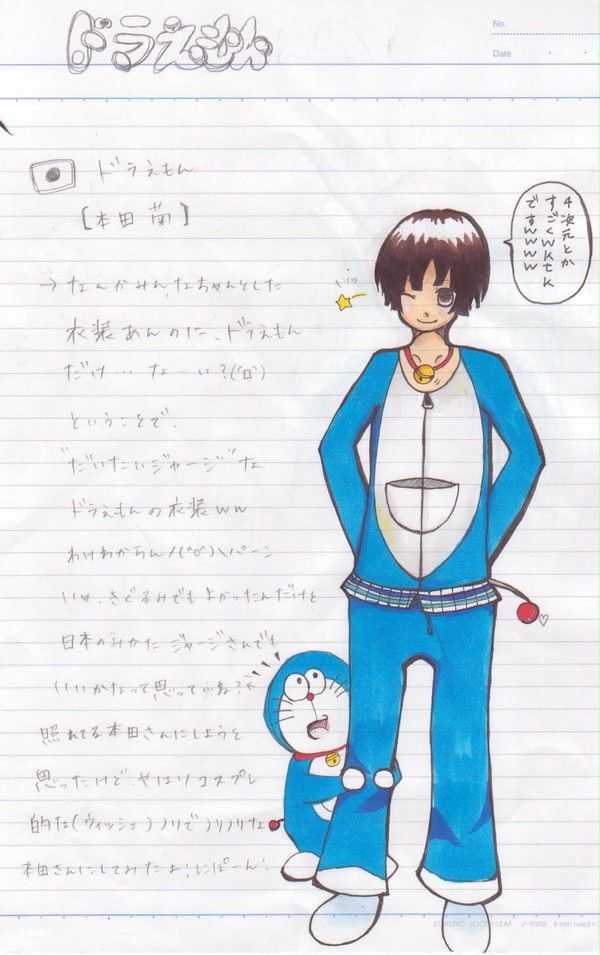 ドラえもん
No.
Date
ドラえもん
[本田 菊]
→なんかみんなちゃんとした
衣装あんのに、ドラえもん
だけ…な…い?(゚Д゚)
ということで、
"だいたいジャージ"な
ドラえもんの衣装ww
わけわからん/(^o^)\パーン
いゃ、きぐるみでもよかったんだけど
日本のみかたジャージさんでも
いいかなって思ってね?
照れてる本田さんにしようと
思ったけど、やはりコスプレ
的な(ウィッシュ)ノリでノリノリな
本田さんにしてみたよ!にぽーん!
4次元とか
すごくwktk
ですwwww
KOKUYO LOOSE-LEAF ノ-836B 6 mm ruled×